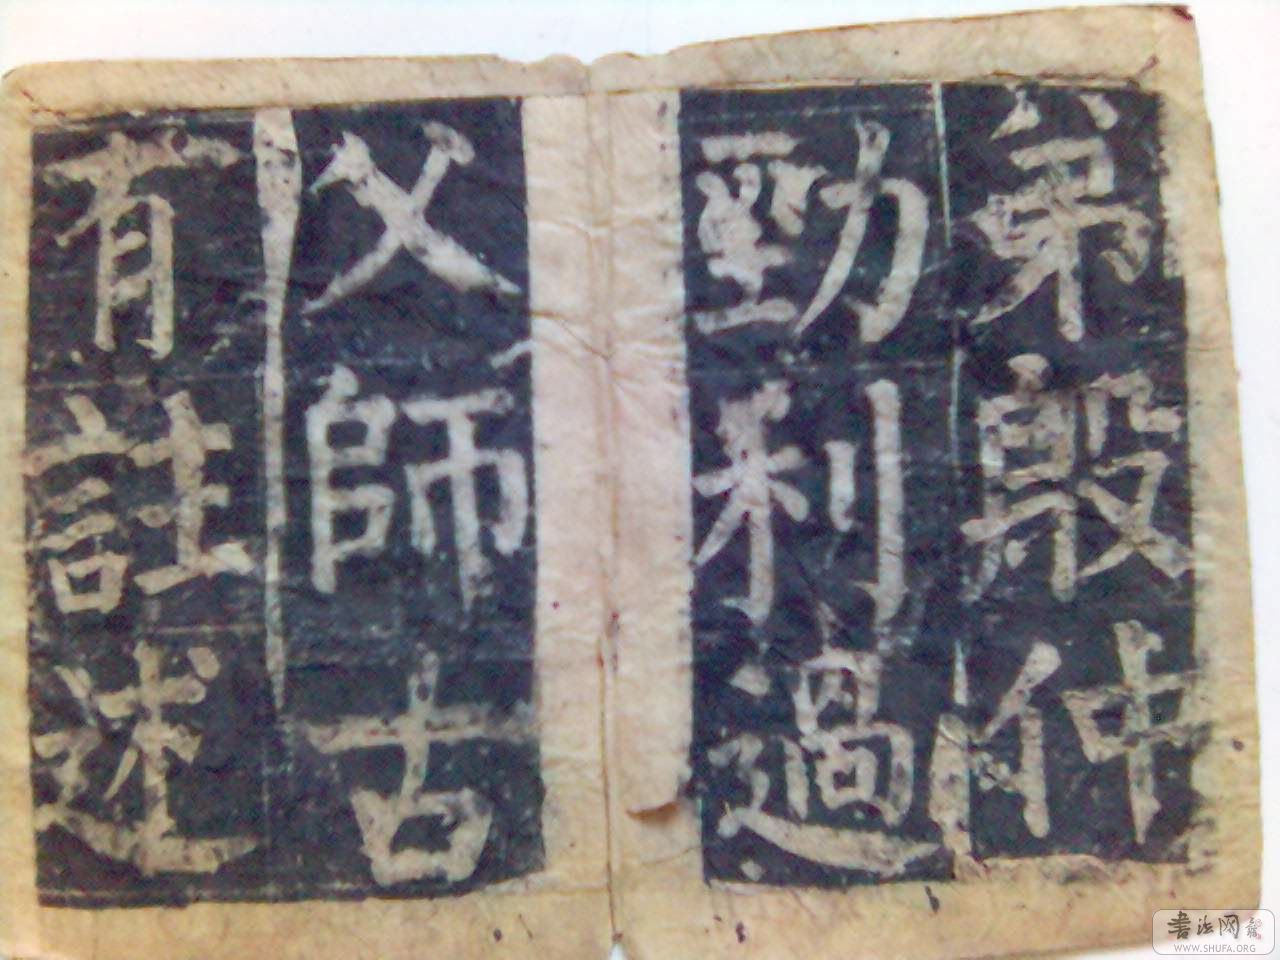 弟殷仲
勁利過
父師古
有註述
書法网
WWW.SHUFA.ORG